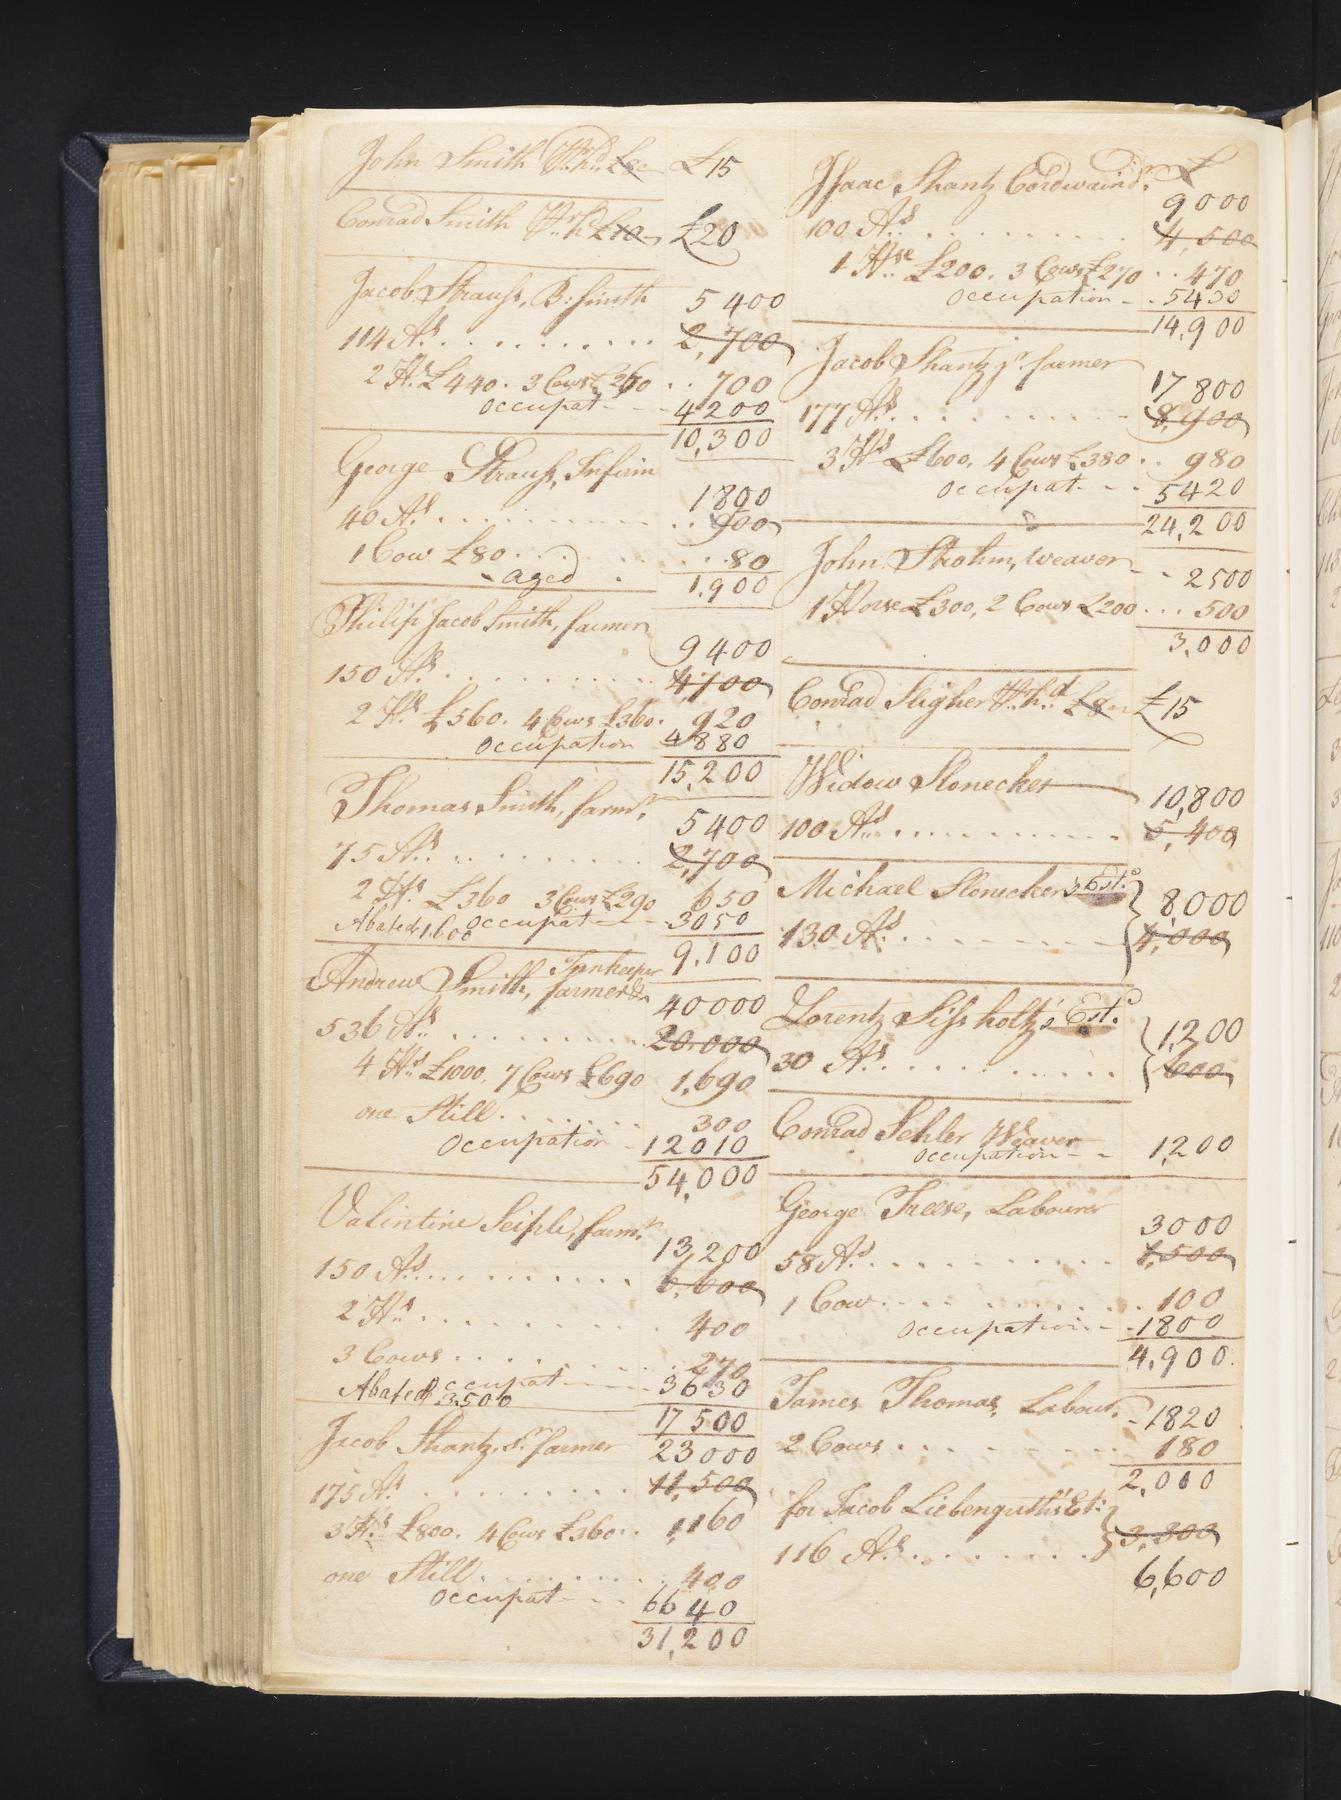 John Smith £15
Conrad Smith £20
Jacob Strauss, B: smith 5400
114 As. . . . . . . . . . . 2,700
2 Hs £440. 3 Cows £260 . . 700
occupat - - - 4200
10,300
George Strauss, Infirm
1800
40 As. . . . . . . . . . . 900
1 Cow £80 . . . . . . 80
aged 1.900
Philip Jacob Smith, farmer
9400
150 As. . . . . . . . . . . 4,700
2 Hs £560. 4 Cows £360. 920
occupation 4880
15,200
Thomas Smith, farmr.
5400
75 As. . . . . . . . . . . 2,700
2 Hs £360 3 Cows £290 650
Abated 1.600 occupat - - 3050
9.100
Innkeeper
Andrew Smith, farmer &
40000
536 As . . . . . . . . . . 20.000
4 Hs £1000. 7 Cows £690 1,690
one Still . . . . . . . 300
occupation - 12010
54,000
Valintine Seiple, farmr.
13,200
150 As. . . . . . . . . . . 6,600
2 Hs . . . . . . . . . . . 400
3 Cows . . . . . . . . . . 270
Abated 3.500 occupat - - - 3630
17500
Jacob Shantz, Sr farmer 23000
175 As . . . . . . . . . . 11,500
3 Hs £800. 4 Cows £360 . . 1,160
one Still . . . . . . . . . 400
occupat - - - 6640
31,200
Isaac Shantz Cordwaindr. £
9000
100 As . . . . . . . . . . 4,500
1 Hse £200. 3 Cows £270 . . 470
occupation - . 5430
14,900
Jacob Shantz jr. farmer
17800
177 As . . . . . . . . . . 8,900
3 Hs £600. 4 Cows £380 . . 980
occupat - - . 5420
24,200
John Strohm, weaver - - 2500
1 Horse £300, 2 Cows £200 . . . 500
3,000
Conrad £15
Widow Stonecker 10,800
100 As . . . . . . . . . . 5,400
Michael Stonecker's Est. 8,000
130 As . . . . . . . . . . 4,000
Lorentz Est. 1,200
30 As . . . . . . . . . . 600
Conrad Sehler Weaver
occupation - - 1,200
George Freese, Labourer
3000
58 As . . . . . . . . . . 1,500
1 Cow . . . . . . . . . . 100
occupation - - 1800
4,900.
James Thomas, Labour. - 1820
2 Cows . . . . . . . . . . 180
2,000
for Jacob Liebenguth's Et:
116 As . . . . . . . . . . 3,300
6,600